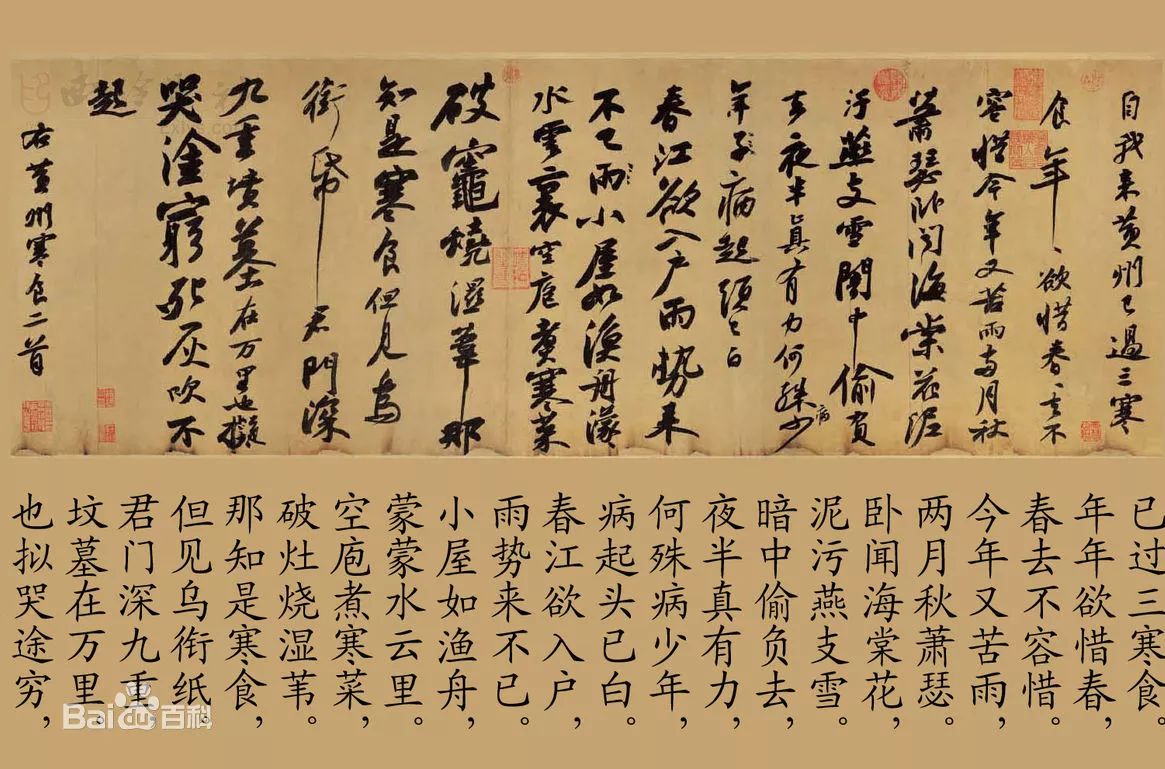 自我来黄州已過三寒
食年〻欲惜春〻去不
容惜今年又苦雨兩月秋
蕭瑟卧聞海棠花泥
汙燕支雪闇中偷負
去夜半真有力何殊病少
年子病起須已白
春江欲入户雨勢来
不已雨小屋如漁舟濛〻
水雲裏空庖煮寒菜
破竈燒濕葦那
知是寒食但見烏
銜帋君門深
九重墳墓在万里也擬
哭塗窮死灰吹不
起
右黄州寒食二首
已过三寒食。
年年欲惜春，
春去不容惜。
今年又苦雨，
两月秋萧瑟。
卧闻海棠花，
泥污燕支雪。
暗中偷负去，
夜半真有力，
何殊病少年，
病起头已白。
春江欲入户，
雨势来不已。
小屋如渔舟，
蒙蒙水云里。
空庖煮寒菜，
破灶烧湿苇。
那知是寒食，
但见乌衔纸。
君门深九重，
坟墓在万里。
也拟哭途穷，
Baidu百科